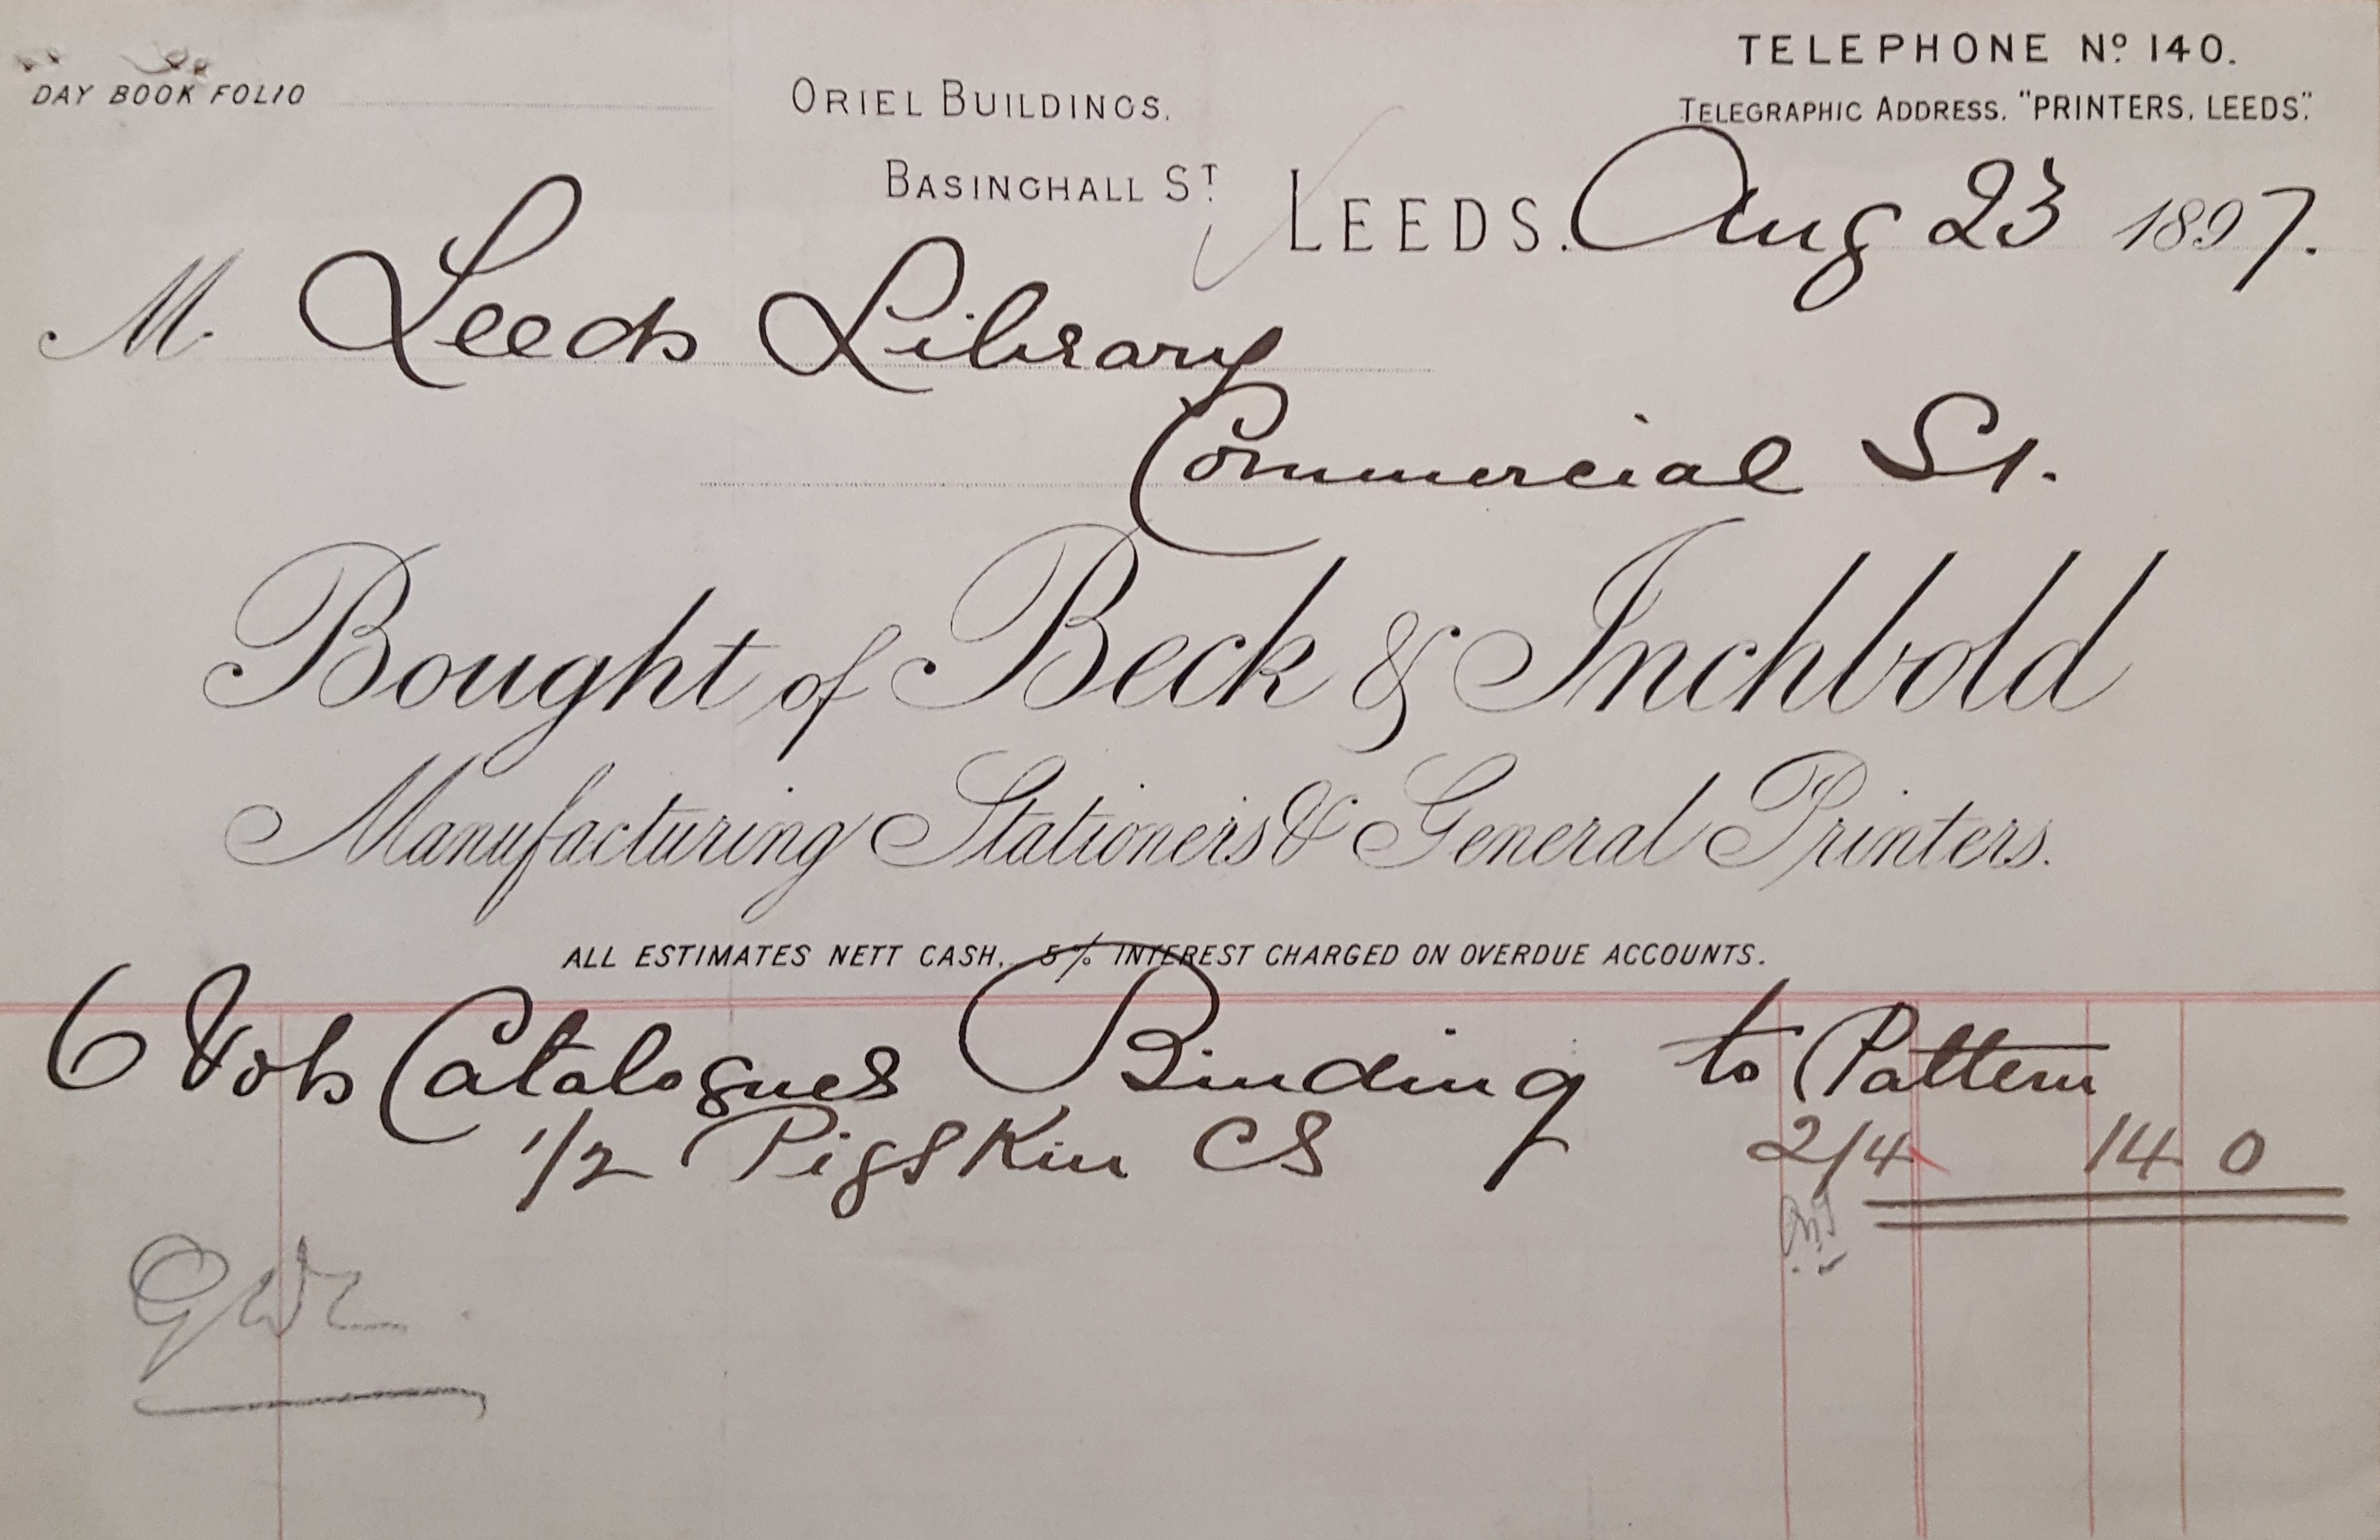 DAY BOOK FOLIO
TELEPHONE Nº 140.
ORIEL BUILDINGS.
TELEGRAPHIC ADDRESS. "PRINTERS, LEEDS".
BASINGHALL ST
LEEDS. Aug 23 1897.
M. Leeds Library
Commercial St.
Bought of Beck & Inchbold
Manufacturing Stationers & General Printers.
ALL ESTIMATES NETT CASH. 5% INTEREST CHARGED ON OVERDUE ACCOUNTS.
6 Vols Catalogues Binding to Pattern
1/2 Pigskin CS 2/4 14 0